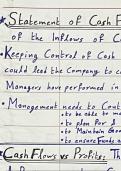 ★Statement of Cash F
of the Inflows of C
•Keeping Control of Cash
could lead the Company to c
Managers have performed in
• Management needs to Cont
•to be able to m
•to plan for
•to Maintain Good
•to ensure Funds a
★Cash Flows vs Profits: Th